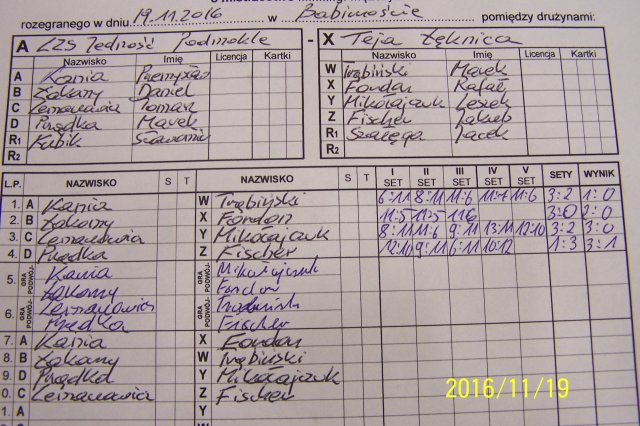 rozegranego w dniu 19.11.2016 w Babimoście pomiędzy drużynami:
A LZS Jedność Podmokle - X Teja Łęknica
Nazwisko Imię Licencja Kartki Nazwisko Imię Licencja Kartki
A Kania W Trębiński Marek
B Żakamy Daniel X Fondov Rafał
C Tomasz Y Mikołajczuk Leszek
D Prządka Marek Z Fischer Jakub
R1 Kubik R1 Jacek
R2 R2
L.P. NAZWISKO S T NAZWISKO S T I SET II SET III SET IV SET V SET SETY WYNIK
1. A Kania W Trębiński 6:11 8:11 11:6 11:7 11:6 3:2 1:0
2. B Żakamy X Fondov 11:5 11:5 11:6 3:0 2:0
3. C Y Mikołajczuk 8:11 11:6 9:11 13:11 12:10 3:2 3:0
4. D Prządka Z Fischer 12:10 9:11 6:11 10:12 1:3 3:1
5. GRA PODWÓJ. Kania GRA PODWÓJ. Mikołajczuk
Żakamy Fondov
6. GRA PODWÓJ. GRA PODWÓJ. Trębiński
Prządka Fischer
7. A Kania X Fondov
8. B Żakamy W Trębiński
9. D Prządka Y Mikołajczuk
0. C Z Fischer
1. A Y
2016/11/19